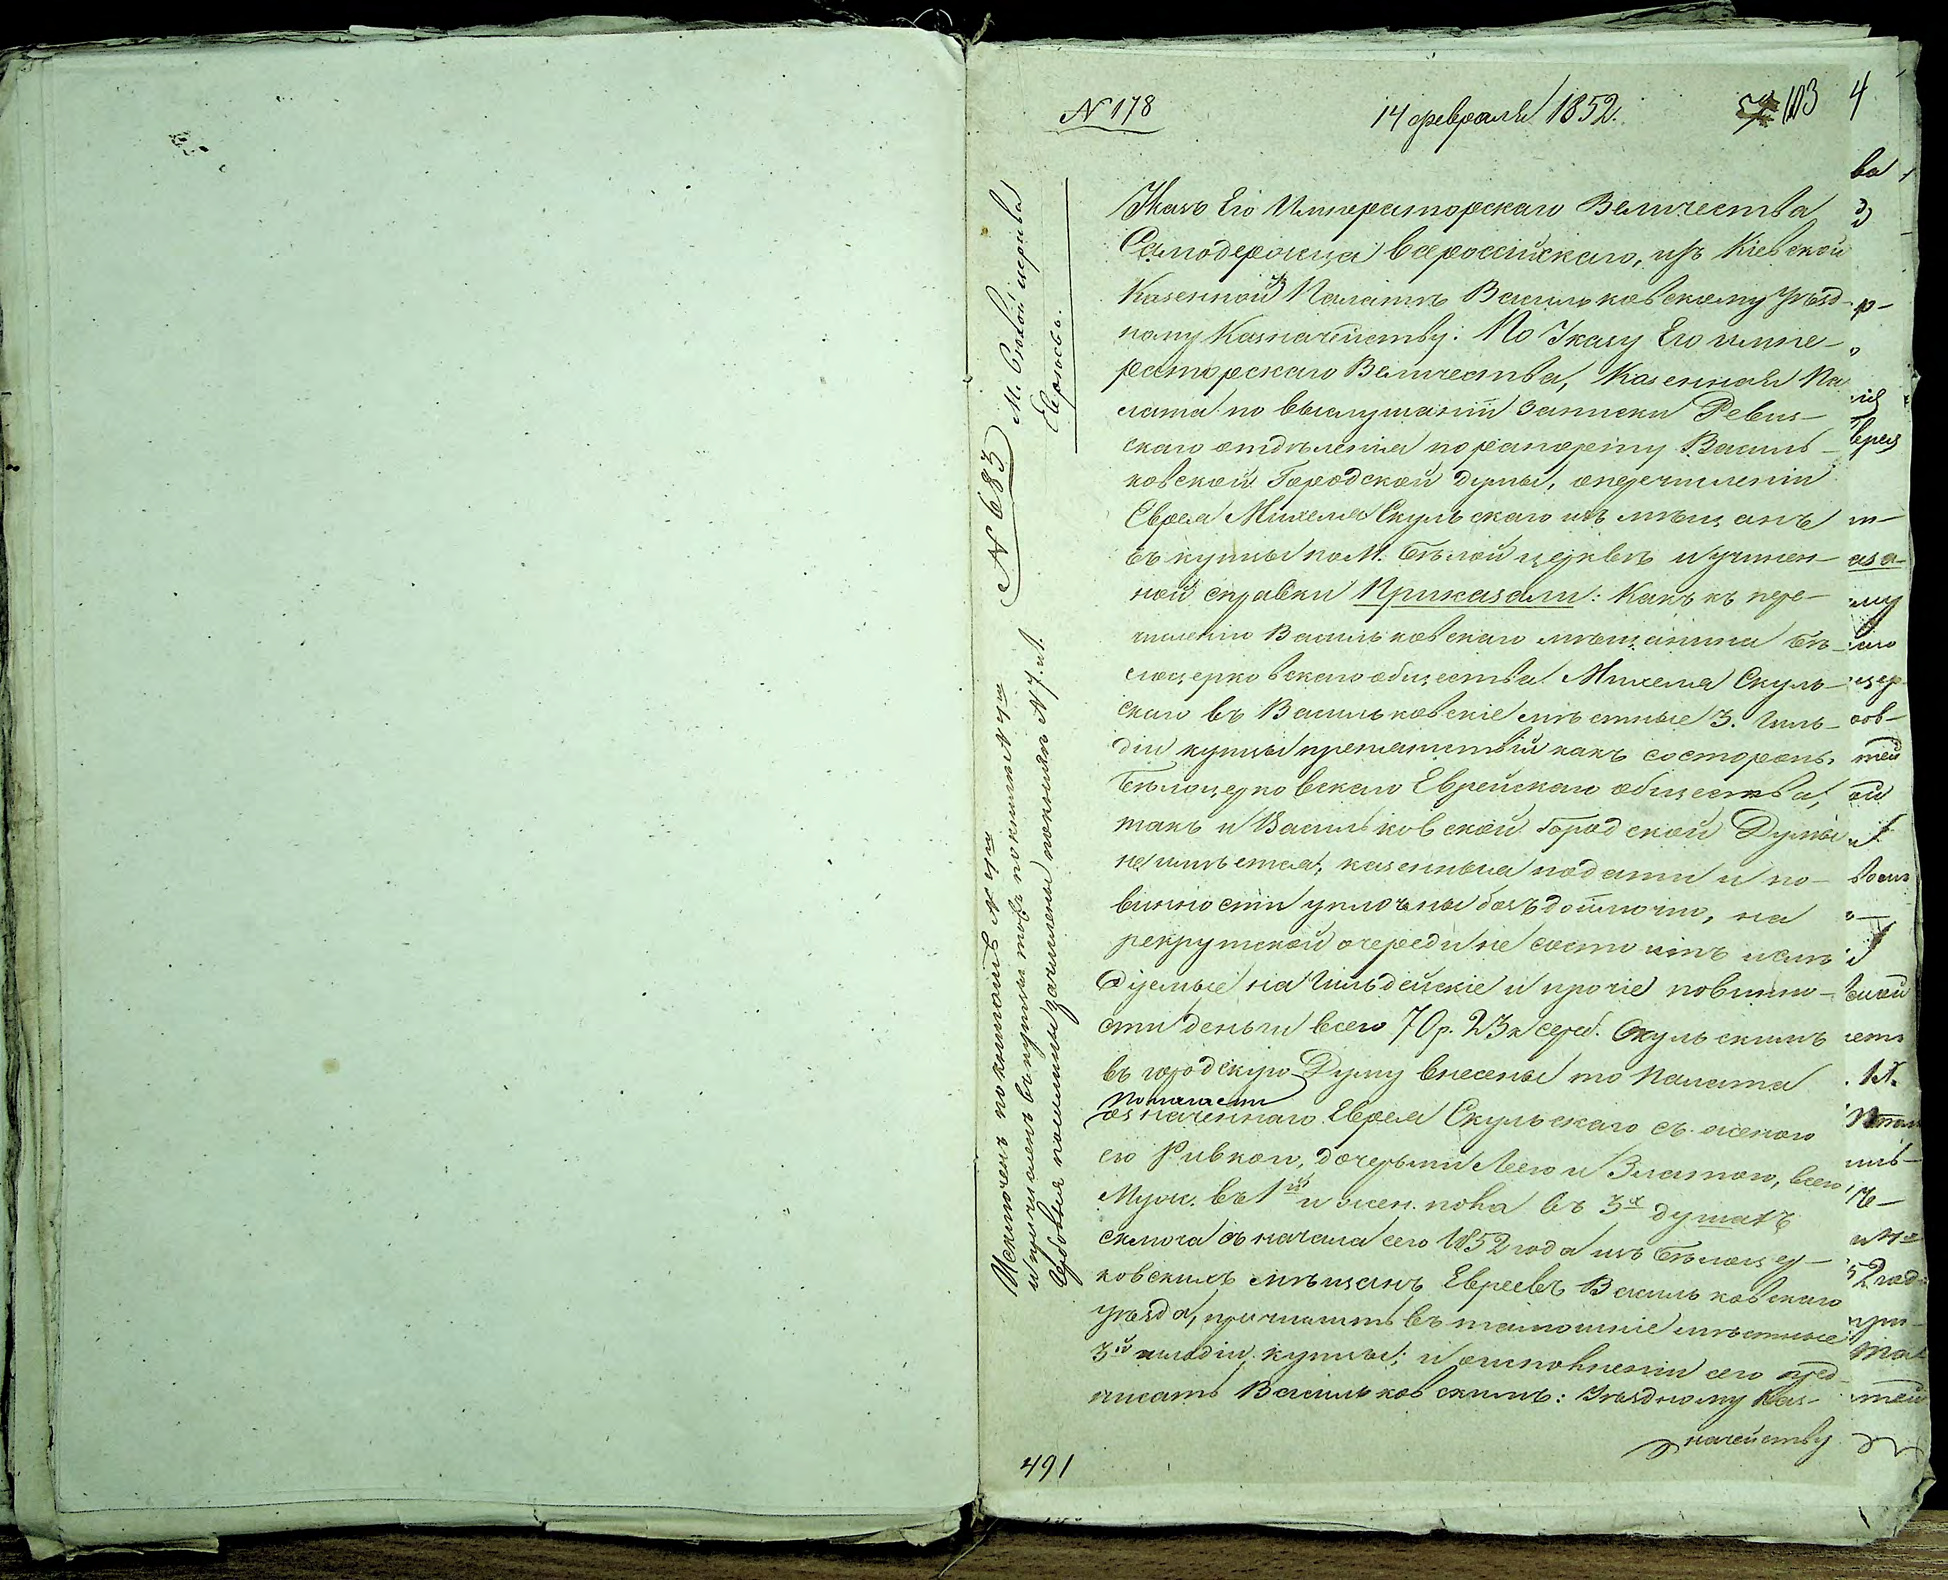 № 178
14 февраля 1852.
103
4
Указъ Его Императорскаго Величества
Самодержца Всероссійскаго, изъ Кіевской
Казенной Палаты Васильковскому Уѣзд-
ному Казначейству: По Указу Его Импе-
раторскаго Величества, Казенная Па
лата по выслушаніи записки Ревиз-
скаго отдѣленія по рапорту Василь-
ковской Городской Думы, о перечисленіи
Еврея Михеля Скульскаго изъ мѣщанъ
въ купцы по М. Бѣлой церквѣ и учинен-
ной справки Приказали: Какъ къ пере-
численію Васильковскаго мѣщанина Бѣ-
лоцерковскаго общества Михеля Скуль-
скаго въ Васильковскіе мѣстные 3. Гиль-
діи купцы препятствій какъ со стороны
Бѣлоцерковскаго Еврейскаго общества,
такъ и Васильковской Городской Думы
не имѣется, казенныя подати и по-
винности уплочены безъдоимочно, на
рекрутской очереди не состоитъ и
на Гильдейскіе и прочіе повинно-
сти деньги всего 70 р. 23 к сереб. Скульскимъ
въ городскую Думу внесены то Палата
Полагаетъ
означеннаго Еврея Скульскаго съ женою
его Ривкою, дочерьми Леею и Златою, всего
Муж. въ 1й и жен. пола въ 3х душахъ
съ начала сего 1852 года изъ Бѣлоцер-
ковскихъ мѣщанъ Евреевъ Васильковскаго
уѣзда, причислить въ тамошніе мѣстные
3й гильдіи купцы; и о исполненіи сего пред-
писать Васильковскимъ: Уѣздному Каз-
начейству
491
№ 683
М. Бѣлой церкви
Евреи.
Исключенъ по книгѣ
и причисленъ въ купцы по книгѣ №
пошлины зачислены по книгѣ № 7. и 1.